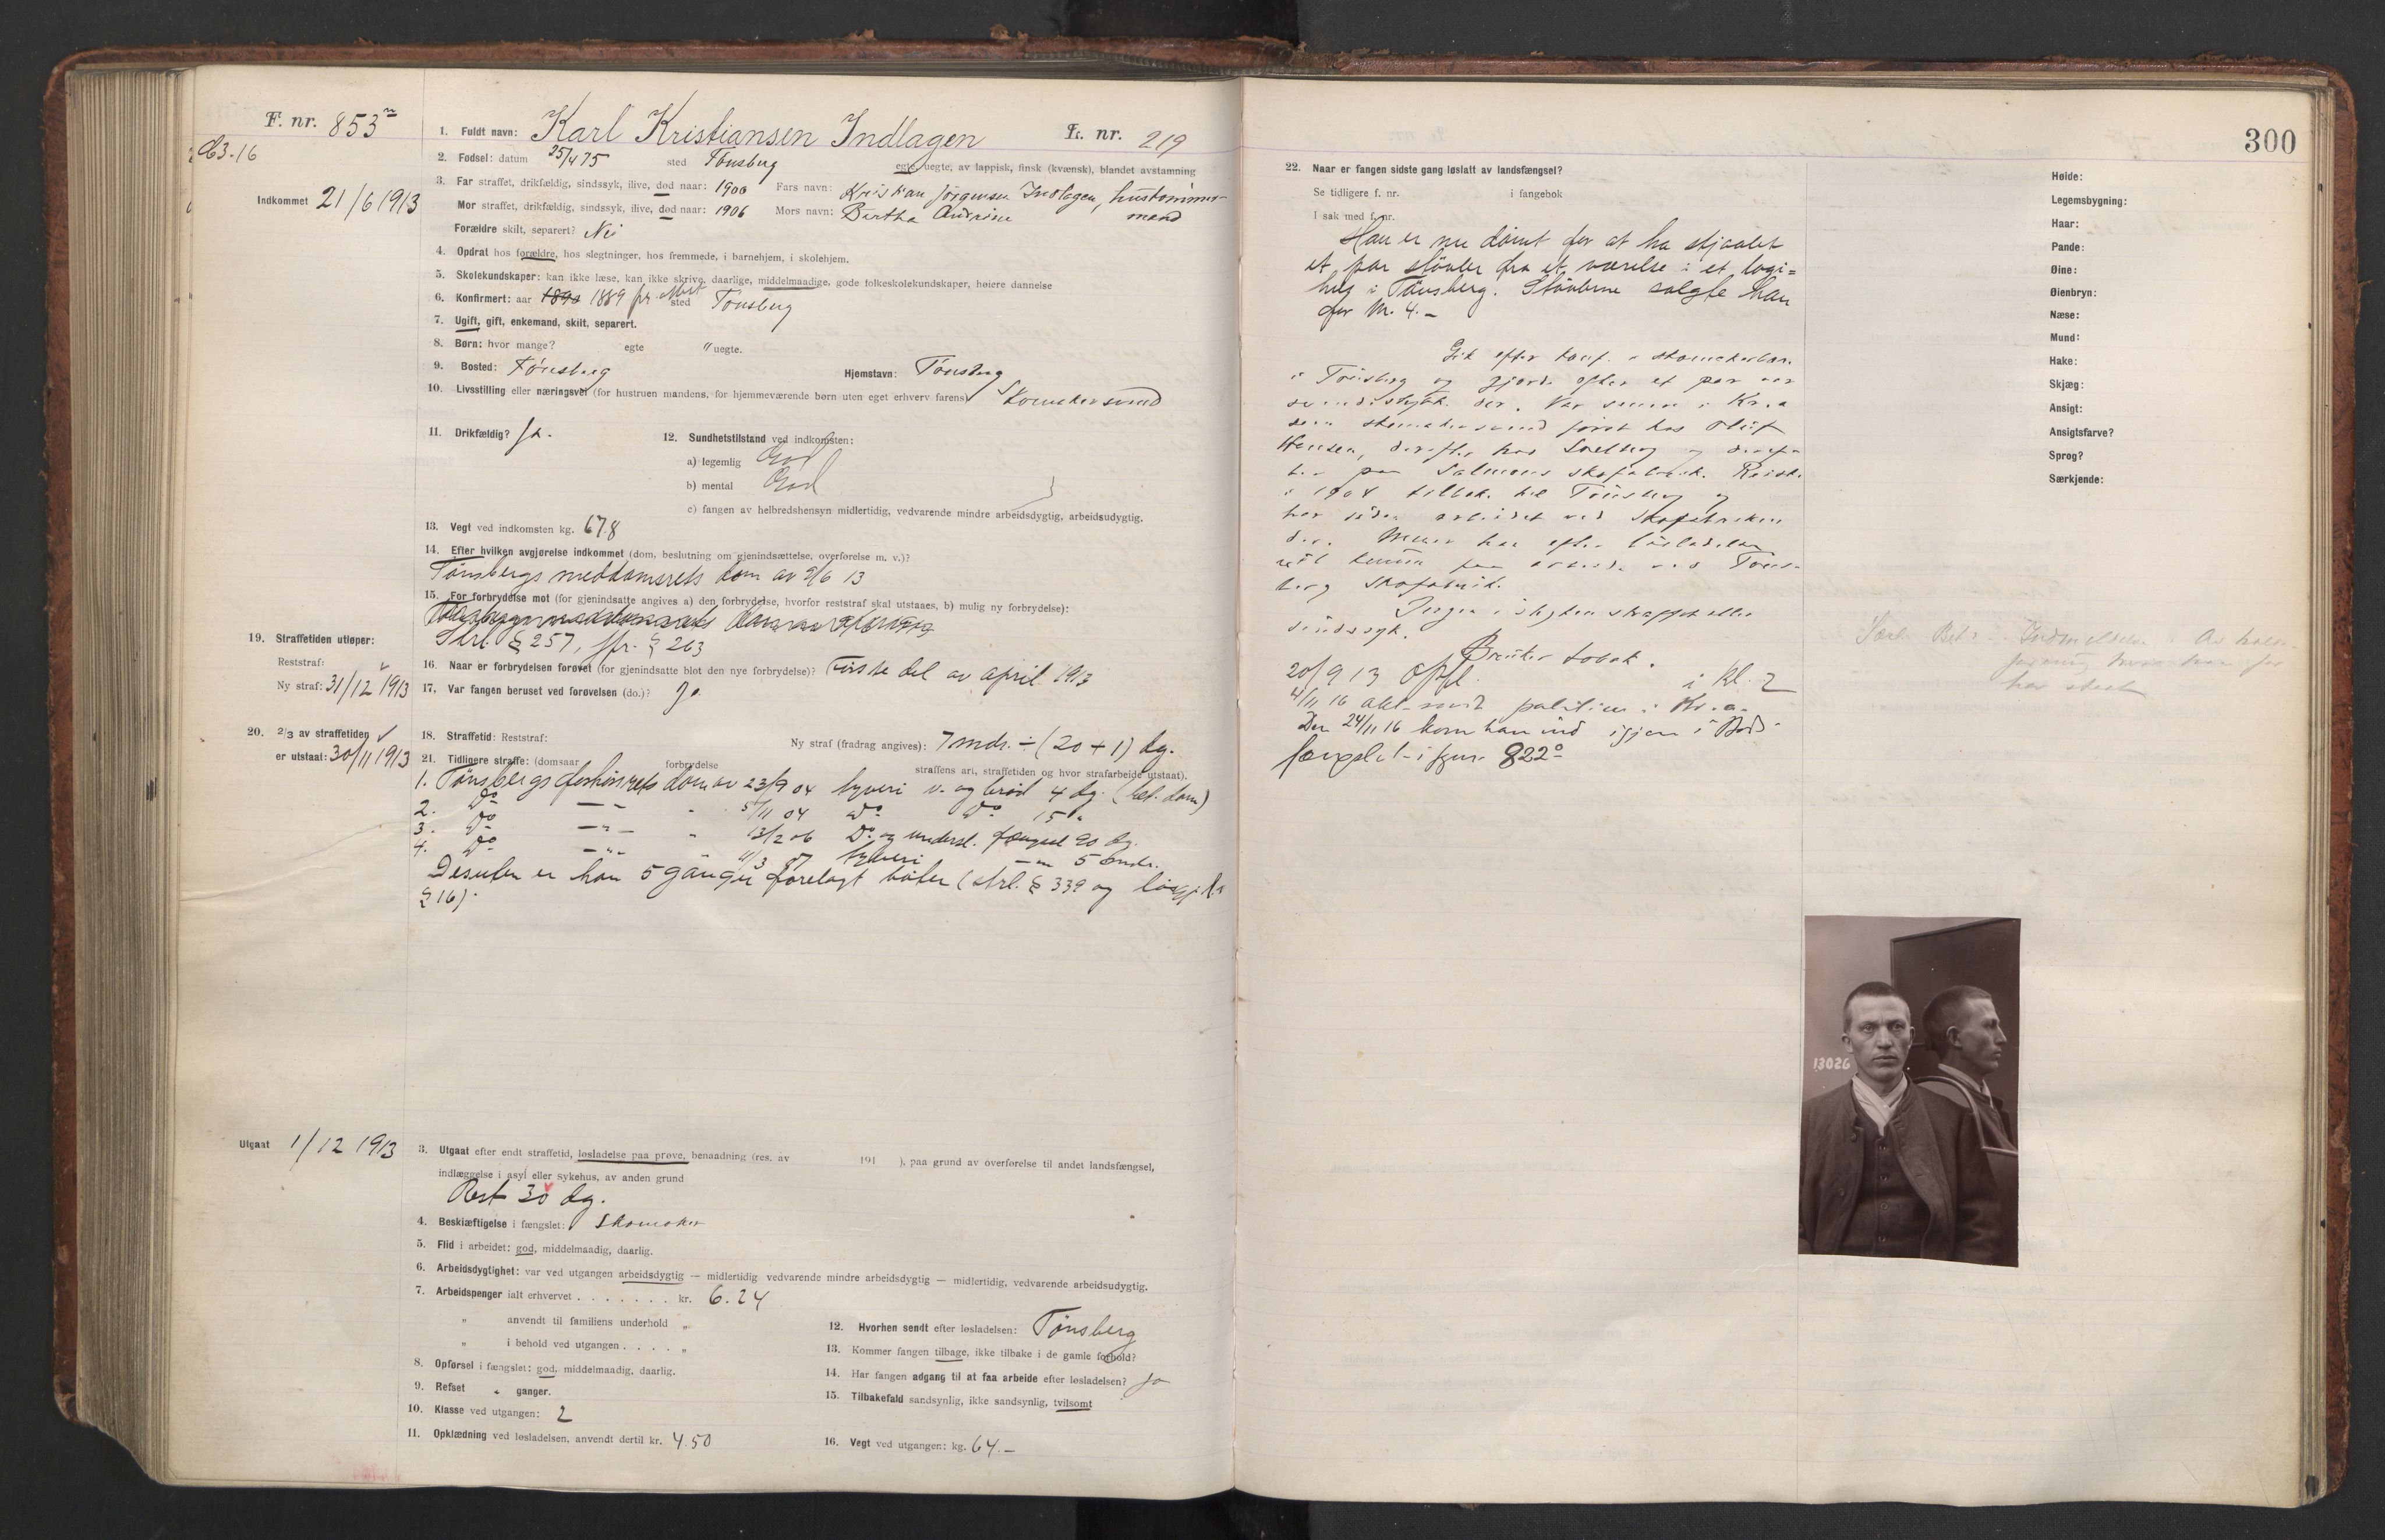 F. nr. 853
1. Fuldt navn: Karl Kristiansen Indlagen L. nr. 219
2. Fødsel: datum 25/4 75 sted Tønsberg egte, uegte, av lappisk, finsk (kvænsk), blandet avstamning
Indkommet 21/6 1913
3. Far straffet, drikfældig, sindssyk, ilive, død naar: 1900 Fars navn: Kristian Jørgensen Indlagen, hustømmer-
mand
Mor straffet, drikfældig, sindssyk, ilive, død naar: 1906 Mors navn: Bertha Andrine
Forældre skilt, separert? Nei
4. Opdrat hos forældre, hos slegtninger, hos fremmede, i barnehjem, i skolehjem.
5. Skolekundskaper: kan ikke læse, kan ikke skrive, daarlige, middelmaadige, gode folkeskolekundskaper, høiere dannelse
6. Konfirmert: aar 1890 1889 sted Tønsberg
7. Ugift, gift, enkemand, skilt, separert.
8. Børn: hvor mange? egte " uegte.
9. Bosted: Tønsberg Hjemstavn: Tønsberg
10. Livsstilling eller næringsvei (for hustruen mandens, for hjemmeværende børn uten eget erhverv farens) Skomakersvend
11. Drikfældig? Ja. 12. Sundhetstilstand ved indkomsten:
a) legemlig God
b) mental God
c) fangen av helbredshensyn midlertidig, vedvarende mindre arbeidsdygtig, arbeidsudygtig.
13. Vegt ved indkomsten kg. 67.8
14. Efter hvilken avgjørelse indkommet (dom, beslutning om gjenindsættelse, overførelse m. v.)?
Tønsbergs meddomsrets dom av 9/6 13
15. For forbrydelse mot (for gjenindsatte angives a) den forbrydelse, hvorfor reststraf skal utstaaes, b) mulig ny forbrydelse):
Strl. § 257, jfr. § 263
19. Straffetiden utløper:
Reststraf:
Ny straf: 31/12 1913
16. Naar er forbrydelsen forøvet (for gjenindsatte blot den nye forbrydelse)? Første del av april 1913
17. Var fangen beruset ved forøvelsen (do.)? Ja
20. 2/3 av straffetiden
er utstaat: 30/11 1913
18. Straffetid: Reststraf: Ny straf (fradrag angives): 7 mdr. ÷ (20 + 1) dg.
21. Tidligere straffe: (domsaar forbrydelse straffens art, straffetiden og hvor strafarbeide utstaat).
1. Tønsbergs forhørsrets dom av 23/9 04 tyveri v. og brød 4 dg. (bet. dom)
2. Do — " — " 5/11 04 Do Do 15 "
3. Do — " — " 13/2 06 Do og undersl. fængsel 90 dg.
4. Do — " — 4/3 07 tyveri — " — 5 mdr.
Desuten er han 5 ganger forelagt bøter (strl. § 339 og
§ 16).
Utgaat 1/12 1913
3. Utgaat efter endt straffetid, løsladelse paa prøve, benaadning (res. av 191 ), paa grund av overførelse til andet landsfængsel,
indlæggelse i asyl eller sykehus, av anden grund
Rest 30 dg.
4. Beskjæftigelse i fængslet: Skomaker
5. Flid i arbeidet: god, middelmaadig, daarlig.
6. Arbeidsdygtighet: var ved utgangen arbeidsdygtig — midlertidig vedvarende mindre arbeidsdygtig — midlertidig, vedvarende arbeidsudygtig.
7. Arbeidspenger ialt erhvervet . . . . . . . kr. 6.24
" anvendt til familiens underhold "
" i behold ved utgangen . . . . "
8. Opførsel i fængslet: god, middelmaadig, daarlig.
9. Refset " ganger.
10. Klasse ved utgangen: 2
11. Opklædning ved løsladelsen, anvendt dertil kr. 4.50
12. Hvorhen sendt efter løsladelsen: Tønsberg
13. Kommer fangen tilbage, ikke tilbake i de gamle forhold?
14. Har fangen adgang til at faa arbeide efter løsladelsen? Ja
15. Tilbakefald sandsynlig, ikke sandsynlig, tvilsomt
16. Vegt ved utgangen: kg. 64.—
300
22. Naar er fangen sidste gang løslatt av landsfængsel?
Se tidligere f. nr. i fangebok
I sak med f. nr.
Han er nu dømt for at ha stjaalet
et par støvler fra et værelse i et logi=
hus i Tønsberg. Støvlerne solgte han
for kr. 4.—
Gik efter konf. i skomakerlære
i Tønsberg og gjorde efter et par aar
svendestykke der. Var senere i Kr.a
som skomakersvend først hos Oluf
Hansen, derefter hos Solberg og deref=
ter paa Salmons skofabrik. Reiste
i 1904 tilbake til Tønsberg og
har siden arbeidet ved skofabriken
der. Mener han efter løsladelsen
vil komme paa arbeide ved Tøns-
berg Skofabrik.
Ingen i slegten straffet eller
sindssyk.
Bruker tobak.
20/9 13 Opfl. i kl. 2
4/11 16 politiet i Kr.a.
Den 24/11 16 kom han ind igjen i Bods-
fængslet i fgnr. 822
Høide:
Legemsbygning:
Haar:
Pande:
Øine:
Øienbryn:
Næse:
Mund:
Hake:
Skjæg:
Ansigt:
Ansigtsfarve?
Sprog?
Særkjende:
13026